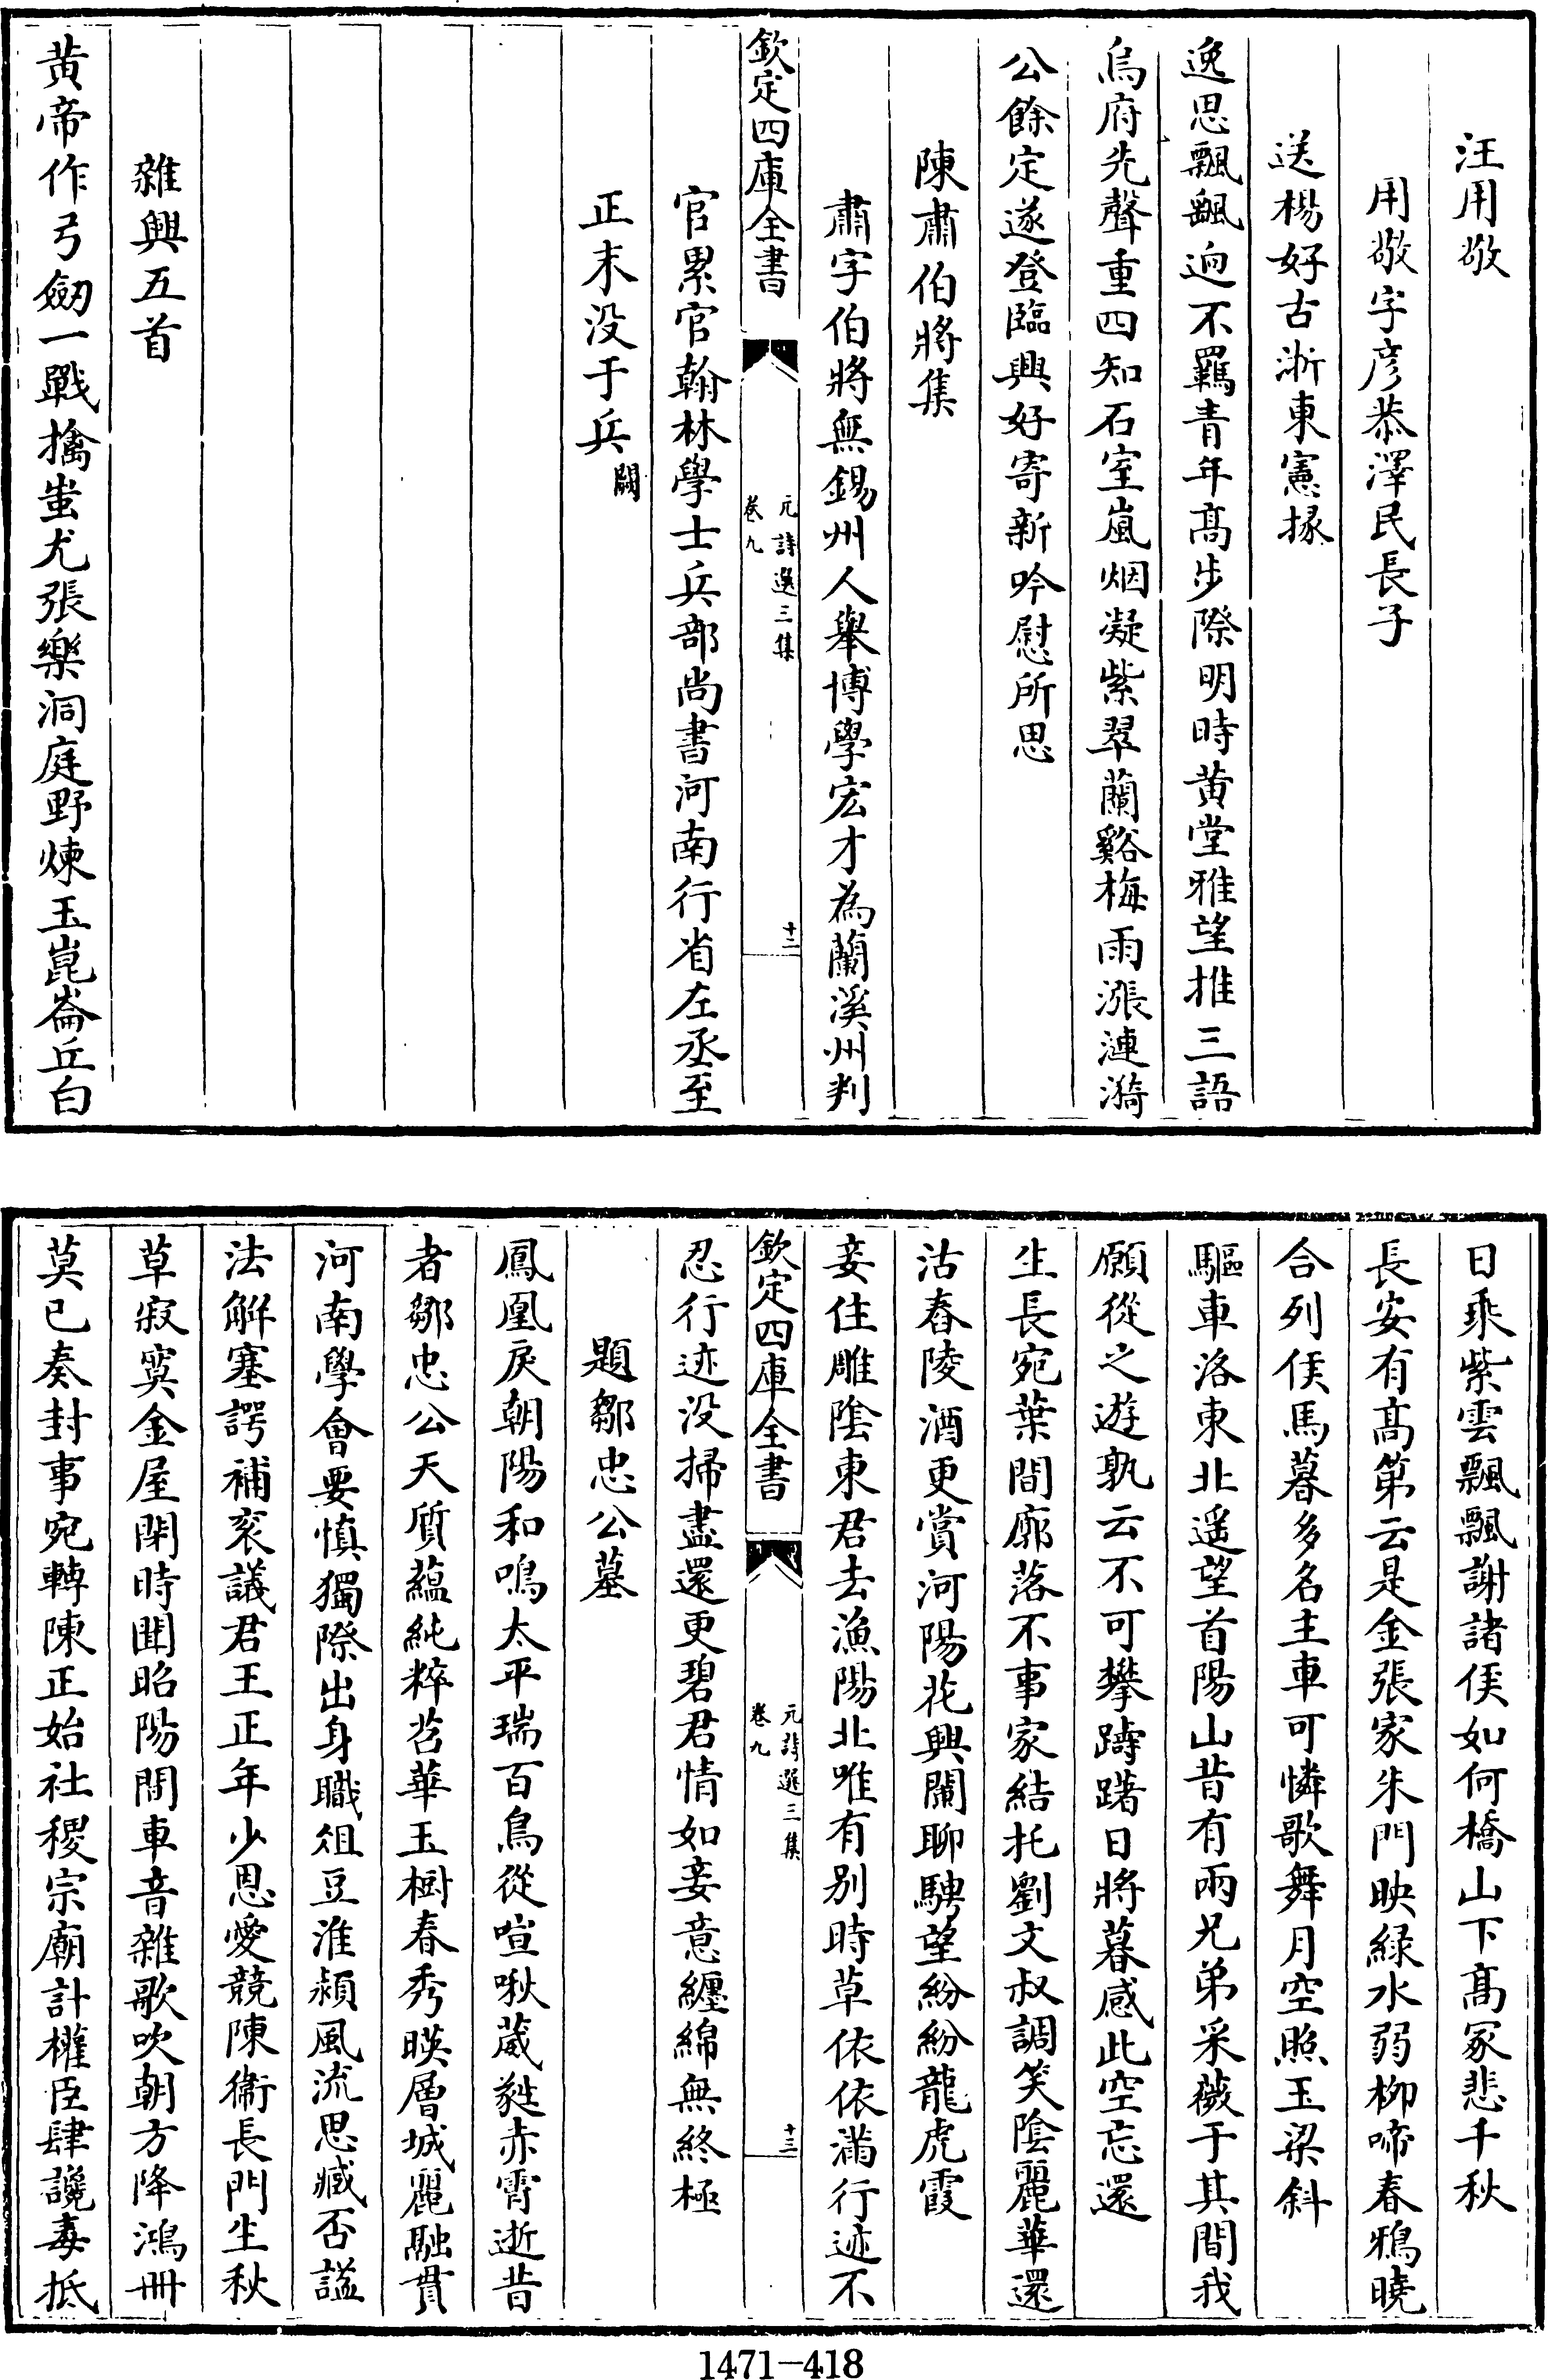 汪用敬
用敬字彥恭澤民長子
送楊好古浙東憲掾
逸思飄飄迥不羈青年髙步際明時黄堂雅望推三語
烏府先聲重四知石室嵐烟凝紫翠蘭谿梅雨漲漣漪
公餘定遂登臨興好寄新吟慰所思
陳肅伯將集
肅字伯將無錫州人舉博學宏才為蘭溪州判
欽定四庫全書
元詩選三集
卷九
十二
官累官翰林學士兵部尚書河南行省左丞至
正末没于兵闕
雜興五首
黄帝作弓劒一戰擒蚩尤張樂洞庭野煉玉崑崙丘白
日乘紫雲飄飄謝諸侯如何橋山下髙冢悲千秋
長安有髙第云是金張家朱門映緑水弱栁啼春鴉曉
合列侯馬暮多名主車可憐歌舞月空照玉梁斜
驅車洛東北遥望首陽山昔有兩兄弟采薇于其間我
願從之遊孰云不可攀躊躇日將暮感此空忘還
生長宛葉間廓落不事家結托劉文叔調笑陰麗華還
沽舂陵酒更賞河陽花興闌聊騁望紛紛龍虎霞
妾住雕陰東君去漁陽北唯有别時草依依滿行迹不
欽定四庫全書
元詩選三集
卷九
十三
忍行迹没掃盡還更碧君情如妾意纏綿無終極
題鄒忠公墓
鳳凰戾朝陽和鳴太平瑞百鳥從喧啾葳蕤赤霄逝昔
者鄒忠公天質藴純粹苕華玉樹春秀暎層城麗融貫
河南學會要慎獨際出身職俎豆淮潁風流思臧否謚
法解塞諤補衮議君王正年少恩愛競陳衞長門生秋
草寂寞金屋閉時聞昭陽開車音雜歌吹朝方降鴻冊
莫已奏封事宛轉陳正始社稷宗廟計權臣肆讒毒抵
1471-418